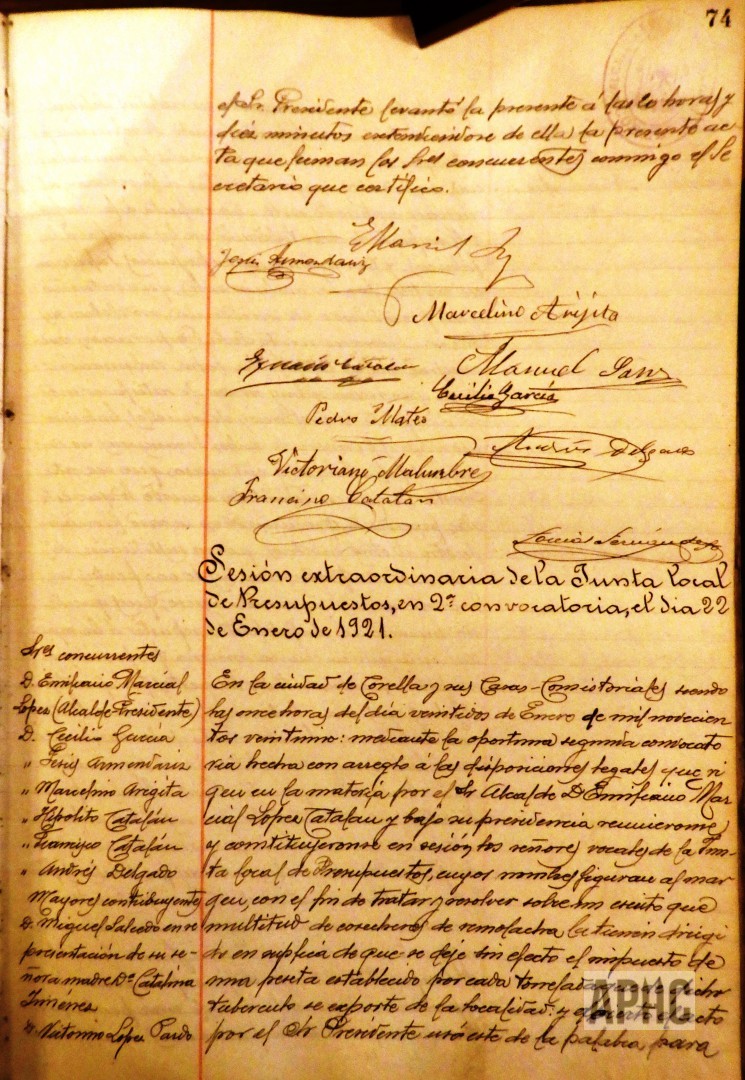 74
el Sr. Presidente levantó la presente á las 20 horas y
diez minutos extendiendose de ella la presente ac
ta que firman los Sres concurrentes conmigo el Se
cretario que certifico.
EMarcl
Jesús Armendariz
Marcelino Arigita
Catalan
Manuel Sanz
Cecilio García
Pedro Mateo
Andrés Delgado
Victoriano Malumbres
Francisco Catalán
Sesión extraordinaria de la Junta local
de Presupuestos, en 2ª convocatoria, el dia 22
de Enero de 1921.
Sres concurrentes
D. Emiliano Marcial
Lopez (Alcalde-Presidente)
D. Cecilio Garcia
" Jesús Armendariz
" Marcelino Arigita
" Hipolito Catalán
" Francisco Catalán
" Andrés Delgado
Mayores contribuyentes
D. Miguel Salcedo en re
presentación de su se-
ñora madre Dª Catalina
Jimenez
" Antonino Lopez Pardo
En la ciudad de Corella y sus Casas-Consistoriales siendo
las once horas del día veintidos de Enero de mil novecien
tos veintiuno: mediante la oportuna segunda convocato
ria hecha con arreglo á las disposiciones legales que ri
gen en la materia por el Sr Alcalde D Emiliano Mar
cial López Catalan y bajo su presidencia reunieronse
y constituyeronse en sesión, los señores vocales de la Jun
ta local de Presupuestos, cuyos nombres figuran al mar
gen, con el fin de tratar y resolver sobre un escrito que
multitud de cosecheros de remolacha la tienen dirigi
do en suplica de que se deje sin efecto el impuesto de
una peseta establecido por cada tonelada que de dicho
tuberculo se exporte de la localidad: y abierto el acto
por el Sr Presidente usó este de la palabra para
APHC